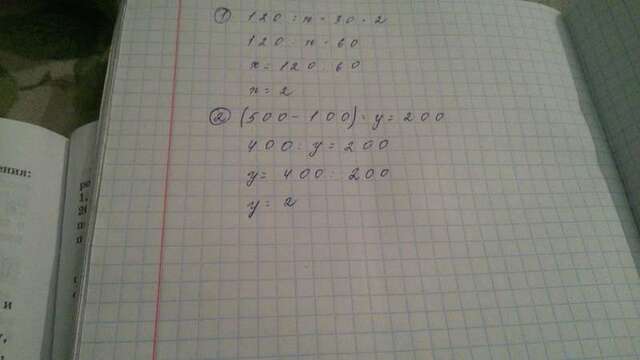 ① 120 : x = 30 · 2
120 : x = 60
x = 120 : 60
x = 2
② (500 - 100) : y = 200
400 : y = 200
y = 400 : 200
y = 2
ения:
1.
и